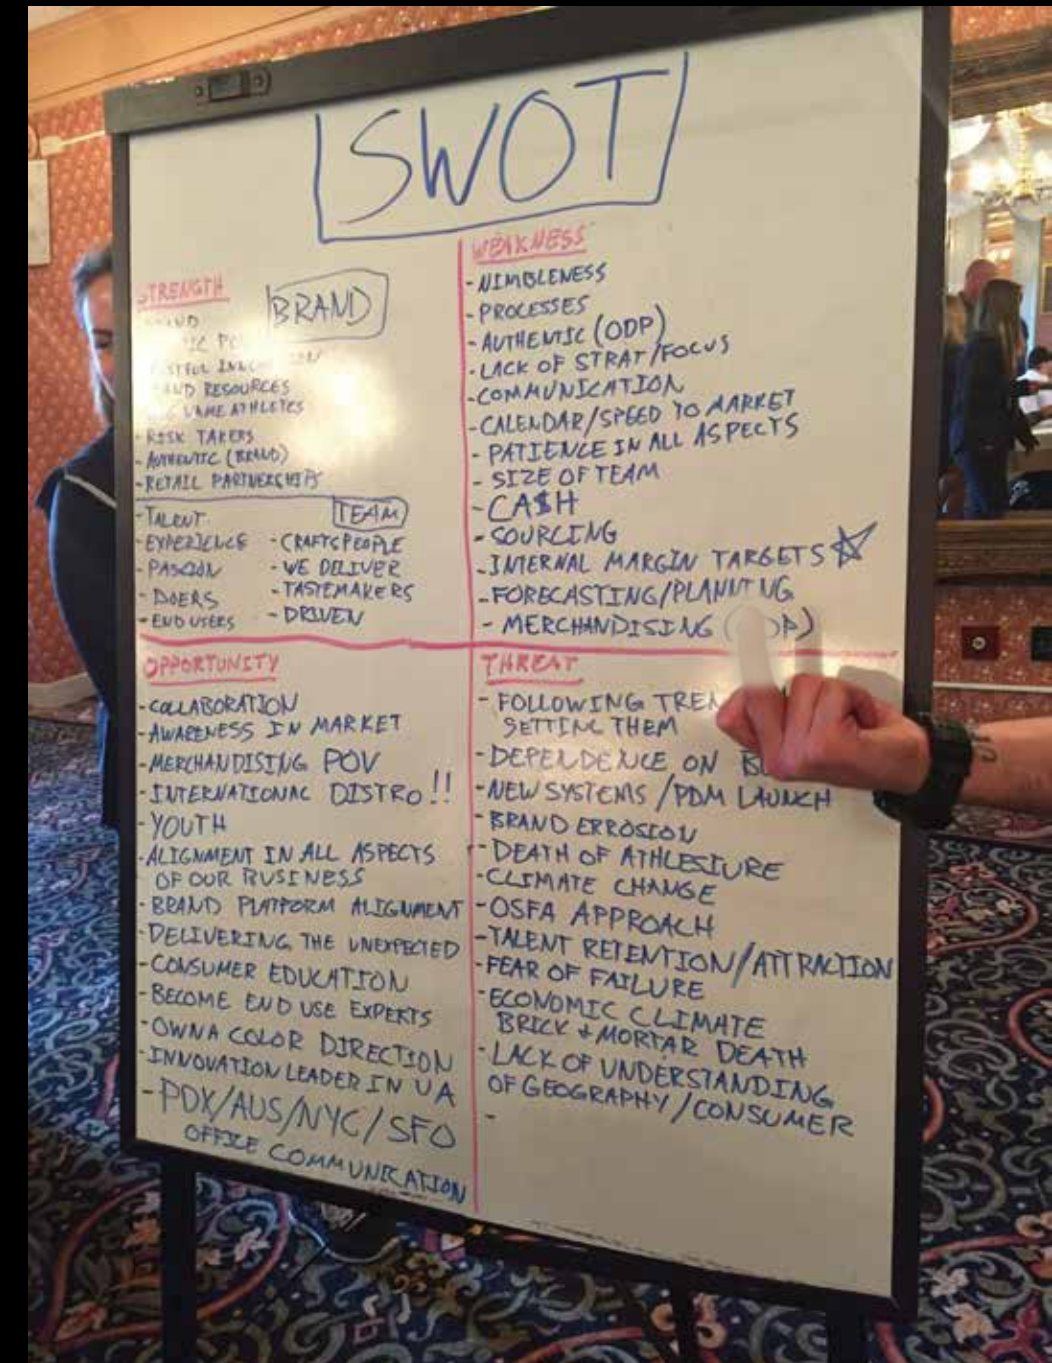 SWOT
STRENGTH
BRAND
RESOURCES
ATHLETES
- RISK TAKERS
- AUTHENTIC (BRAND)
- RETAIL PARTNERSHIPS
TEAM
- TALENT
- EXPERIENCE
- PASSION
- DOERS
- END USERS
- CRAFTSPEOPLE
- WE DELIVER
- TASTEMAKERS
- DRIVEN
WEAKNESS
- NIMBLENESS
- PROCESSES
- AUTHENTIC (ODP)
- LACK OF STRAT/FOCUS
- COMMUNICATION
- CALENDAR/SPEED TO MARKET
- PATIENCE IN ALL ASPECTS
- SIZE OF TEAM
- CA$H
- SOURCING
- INTERNAL MARGIN TARGETS
- FORECASTING/PLANNING
- MERCHANDISING
OPPORTUNITY
- COLLABORATION
- AWARENESS IN MARKET
- MERCHANDISING POV
- INTERNATIONAL DISTRO!!
- YOUTH
- ALIGNMENT IN ALL ASPECTS
OF OUR BUSINESS
- BRAND PLATFORM ALIGNMENT
- DELIVERING THE UNEXPECTED
- CONSUMER EDUCATION
- BECOME END USE EXPERTS
- OWN A COLOR DIRECTION
- INNOVATION LEADER IN UA
- PDX/AUS/NYC/SFO
OFFICE COMMUNICATION
THREAT
- FOLLOWING
SETTING THEM
- DEPENDENCE ON
- NEW SYSTEMS/PDM LAUNCH
- BRAND ERROSION
- DEATH OF ATHLESIURE
- CLIMATE CHANGE
- OSFA APPROACH
- TALENT RETENTION/ATTRACTION
- FEAR OF FAILURE
- ECONOMIC CLIMATE
BRICK + MORTAR DEATH
- LACK OF UNDERSTANDING
OF GEOGRAPHY/CONSUMER
-